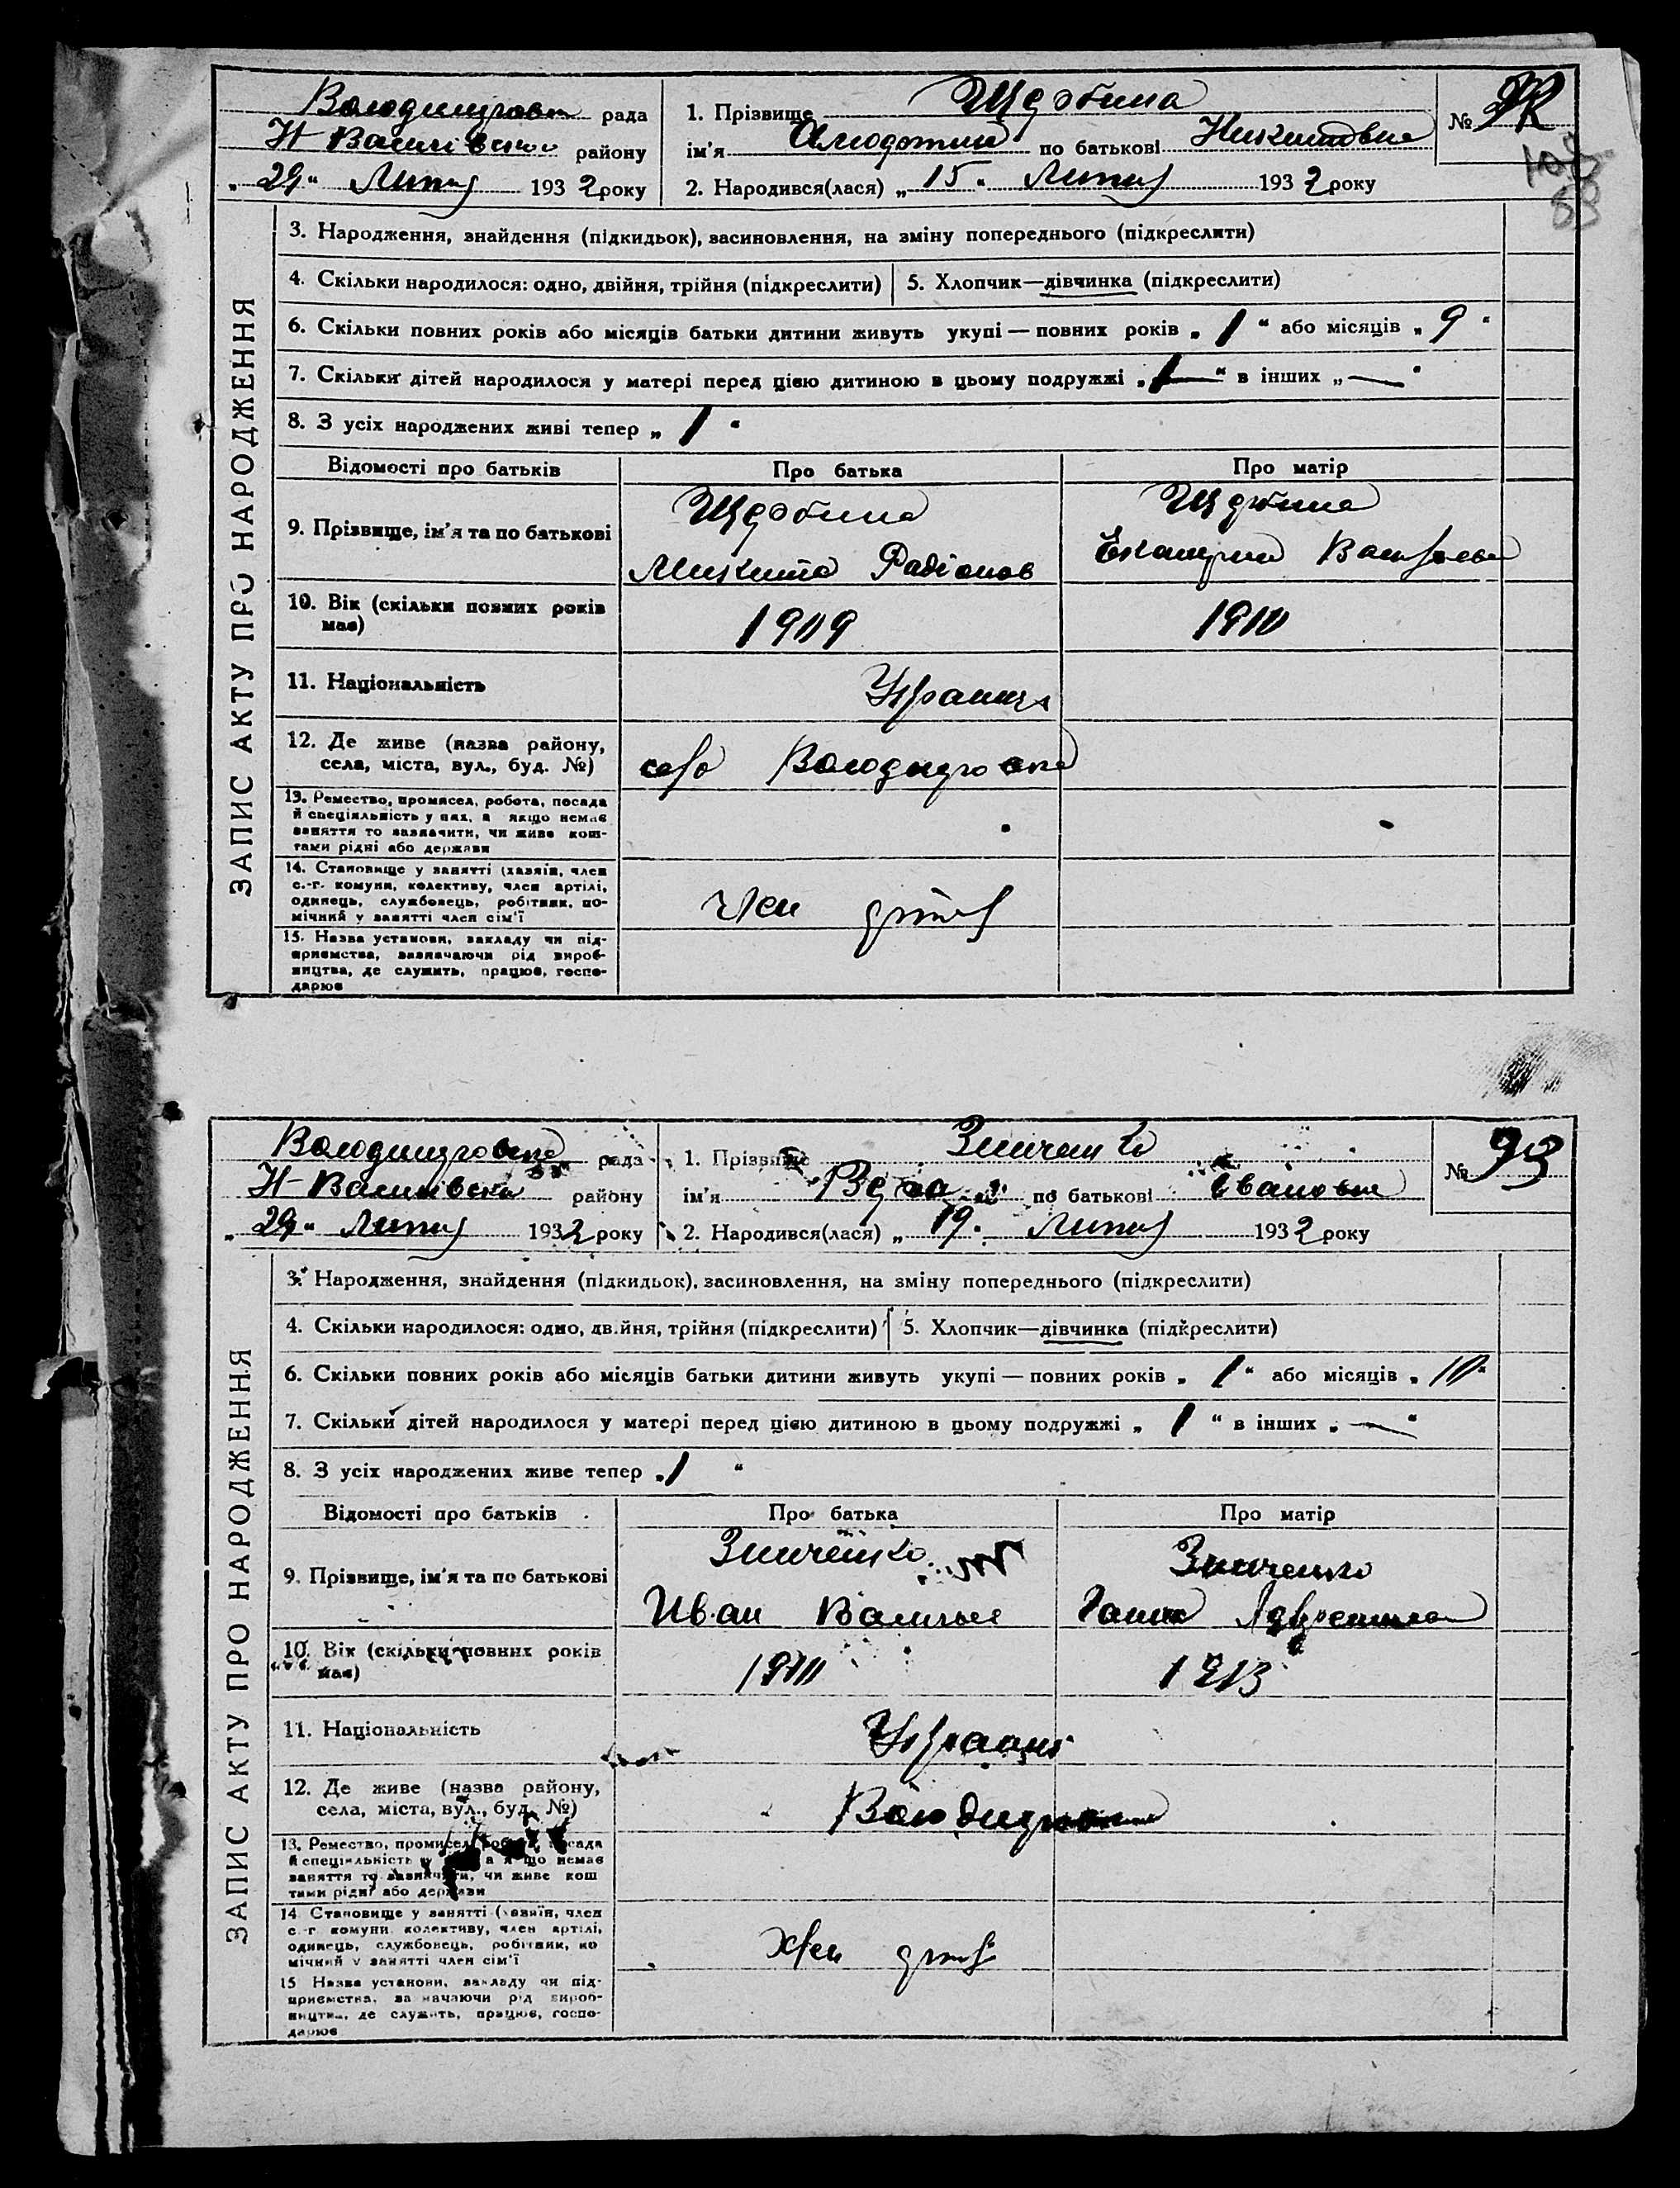 Володимировка рада
Н-Василівського району
„29“ Липня 1932 року
1. Прізвище Щербина
ім'я по батькові Никитовна
2. Народився(лася) „15“ Липня 1932 року
№ 92
ЗАПИС АКТУ ПРО НАРОДЖЕННЯ
3. Народження, знайдення (підкидьок), засиновлення, на зміну попереднього (підкреслити)
4. Скільки народилося: одно, двійня, трійня (підкреслити)
5. Хлопчик—дівчинка (підкреслити)
6. Скільки повних років або місяців батьки дитини живуть укупі — повних років „1“ або місяців „9“
7. Скільки дітей народилося у матері перед цією дитиною в цьому подружжі „1“ в інших „—“
8. З усіх народжених живі тепер „1“
Відомості про батьків Про батька Про матір
9. Прізвище, ім'я та по батькові
Щербина
Микита Радіонов
Щербина
Екатерина Васильевна
10. Вік (скільки повних років має)
1909 1910
11. Національність
Україн
12. Де живе (назва району,
села, міста, вул., буд. №)
село Володимировка
13. Ремество, промисел, робота, посада
й спеціяльність у них, а якщо немає
заняття то зазначити, чи живе кош-
тами рідні або держави
14. Становище у занятті (хазяїн, член
с.-г. комуни, колективу, член артілі,
одинець, службовець, робітник, по-
мічний у занятті член сім'ї
Член артілі
15. Назва установи, закладу чи під-
приємства, зазначаючи рід вироб-
ництва, де служить, працює, госпо-
дарює
Володимировка рада
Н-Василівська району
„29“ Липня 1932 року
1. Прізвище Зинченко
ім'я Вера по батькові Івановна
2. Народився(лася) „19“ Липня 1932 року
№ 93
ЗАПИС АКТУ ПРО НАРОДЖЕННЯ
3. Народження, знайдення (підкидьок), засиновлення, на зміну попереднього (підкреслити)
4. Скільки народилося: одно, двійня, трійня (підкреслити)
5. Хлопчик—дівчинка (підкреслити)
6. Скільки повних років або місяців батьки дитини живуть укупі — повних років „1“ або місяців „10“
7. Скільки дітей народилося у матері перед цією дитиною в цьому подружжі „1“ в інших „—“
8. З усіх народжених живе тепер „1“
Відомості про батьків Про батька Про матір
9. Прізвище, ім'я та по батькові
Зинченко
Иван Васильев
Зинченко
Ганна
10. Вік (скільки повних років має)
1913
11. Національність
Україн
12. Де живе (назва району,
села, міста, вул., буд. №)
Володимировка
13. Ремество, промисел, робота, посада
й спеціяльність у а якщо немає
заняття то зазначити, чи живе кош
тами рідні або держави
14. Становище у занятті (хазяїн, член
с.-г. комуни, колективу, член артілі,
одинець, службовець, робітник, по
мічний у занятті член сім'ї
Член артілі
15 Назва установи, закладу чи під-
приємства, зазначаючи рід вироб-
ництва, де служить, працює, госпо-
дарює